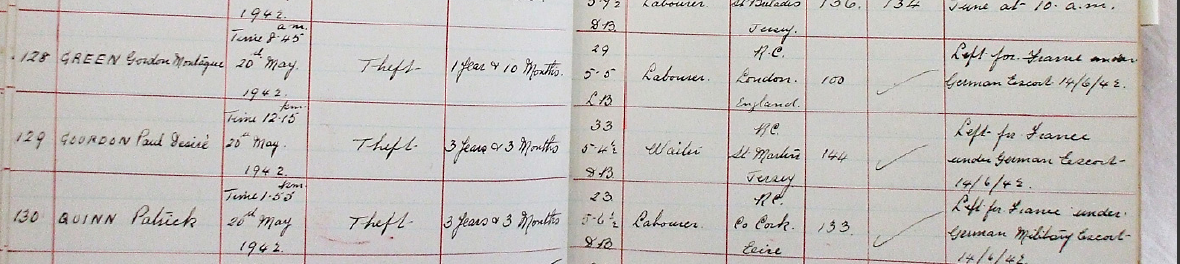 1942.
5-9½ Labourer. St Helades 136. 134 June at 10. a.m.
D.B. Jersey.
a.m.
Time 8.45
128 GREEN Gordon Montague 20th May. Theft 1 Year & 10 Months.
1942.
29 R.C. Left for France under
5-5 Labourer. London. 100 German Escort 14/6/42.
L.B England.
p.m.
Time 12.15
129 GOURDON Paul Desiré 20th May. Theft 3 Years & 3 Months
1942.
33 R.C. Left for France
5-4½ Waiter St Martin's 144 under German Escort
D.B. Jersey 14/6/42.
p.m.
Time 1.55
130 QUINN Patrick 20th May Theft 3 Years & 3 Months
1942.
23. R.C. Left for France under
5-6½ Labourer. Co Cork. 133. German Military Escort
D.B Eeire 14/6/42.